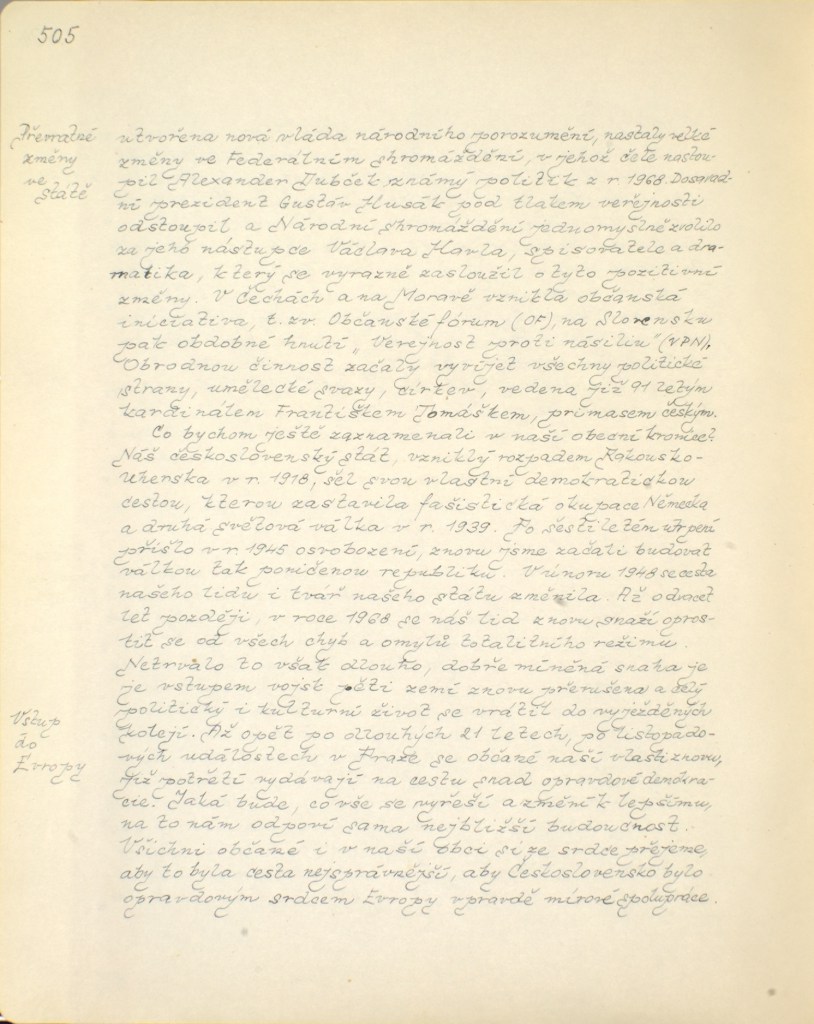 505
Převratné
změny
ve
státě
utvořena nová vláda národního porozumění, nastaly velké
změny ve Federálním shromáždění, v jehož čele nastou-
pil Alexander Dubček známý politik z r. 1968. Dosavad-
ní prezident Gustáv Husák pod tlakem veřejnosti
odstoupil a Národní shromáždění jednomyslně zvolilo
za jeho nástupce Václava Havla, spisovatele a dra-
matika, který se výrazně zasloužil o tyto pozitivní
změny. V Čechách a na Moravě vznikla občanská
iniciativa, t. zv. Občanské fórum (OF), na Slovensku
pak obdobné hnutí „Verejnost proti násiliu" (VPN).
Obrodnou činnost začaly vyvíjet všechny politické
strany, umělecké svazy, církev, vedena již 91 letým
kardinálem Františkem Tomáškem, primasem českým.
Co bychom ještě zaznamenali v naší obecní kronice?
Náš československý stát, vzniklý rozpadem Rakousko-
Uherska v r. 1918, šel svou vlastní demokratickou
cestou, kterou zastavila fašistická okupace Německa
a druhá světová válka v r. 1939. Po šestiletém utrpení
přišlo v r. 1945 osvobození, znovu jsme začali budovat
válkou tak poničenou republiku. V únoru 1948 se cesta
našeho lidu i tvář našeho státu změnila. Až o dvacet
let později, v roce 1968 se náš lid znovu snaží opros-
tit se od všech chyb a omylů totalitního režimu.
Netrvalo to však dlouho, dobře míněná snaha je
je vstupem vojsk pěti zemí znovu přerušena a celý
politický i kulturní život se vrátil do vyježděných
kolejí. Až opět po dlouhých 21 letech, po listopado-
vých událostech v Praze se občané naší vlasti znovu,
již potřetí vydávají na cestu snad opravdové demokra-
cie. Jaká bude, co vše se vyřeší a změní k lepšímu,
na to nám odpoví sama nejbližší budoucnost.
Všichni občané i v naší obci si ze srdce přejeme,
aby to byla cesta nejsprávnější, aby Československo bylo
opravdovým srdcem Evropy vpravdě mírové spolupráce.
Vstup
do
Evropy